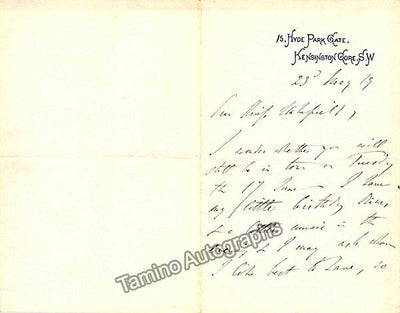 15, HYDE PARK GATE,
KENSINGTON GORE, S.W
23ᵈ May 19
Dear Miss
I wonder whether you will
still be in town on Tuesday
the 17 June – I have
my little birthday dinner,
& a little music in the
& I may ask whom
I like best to have, so
Tamino Autographs